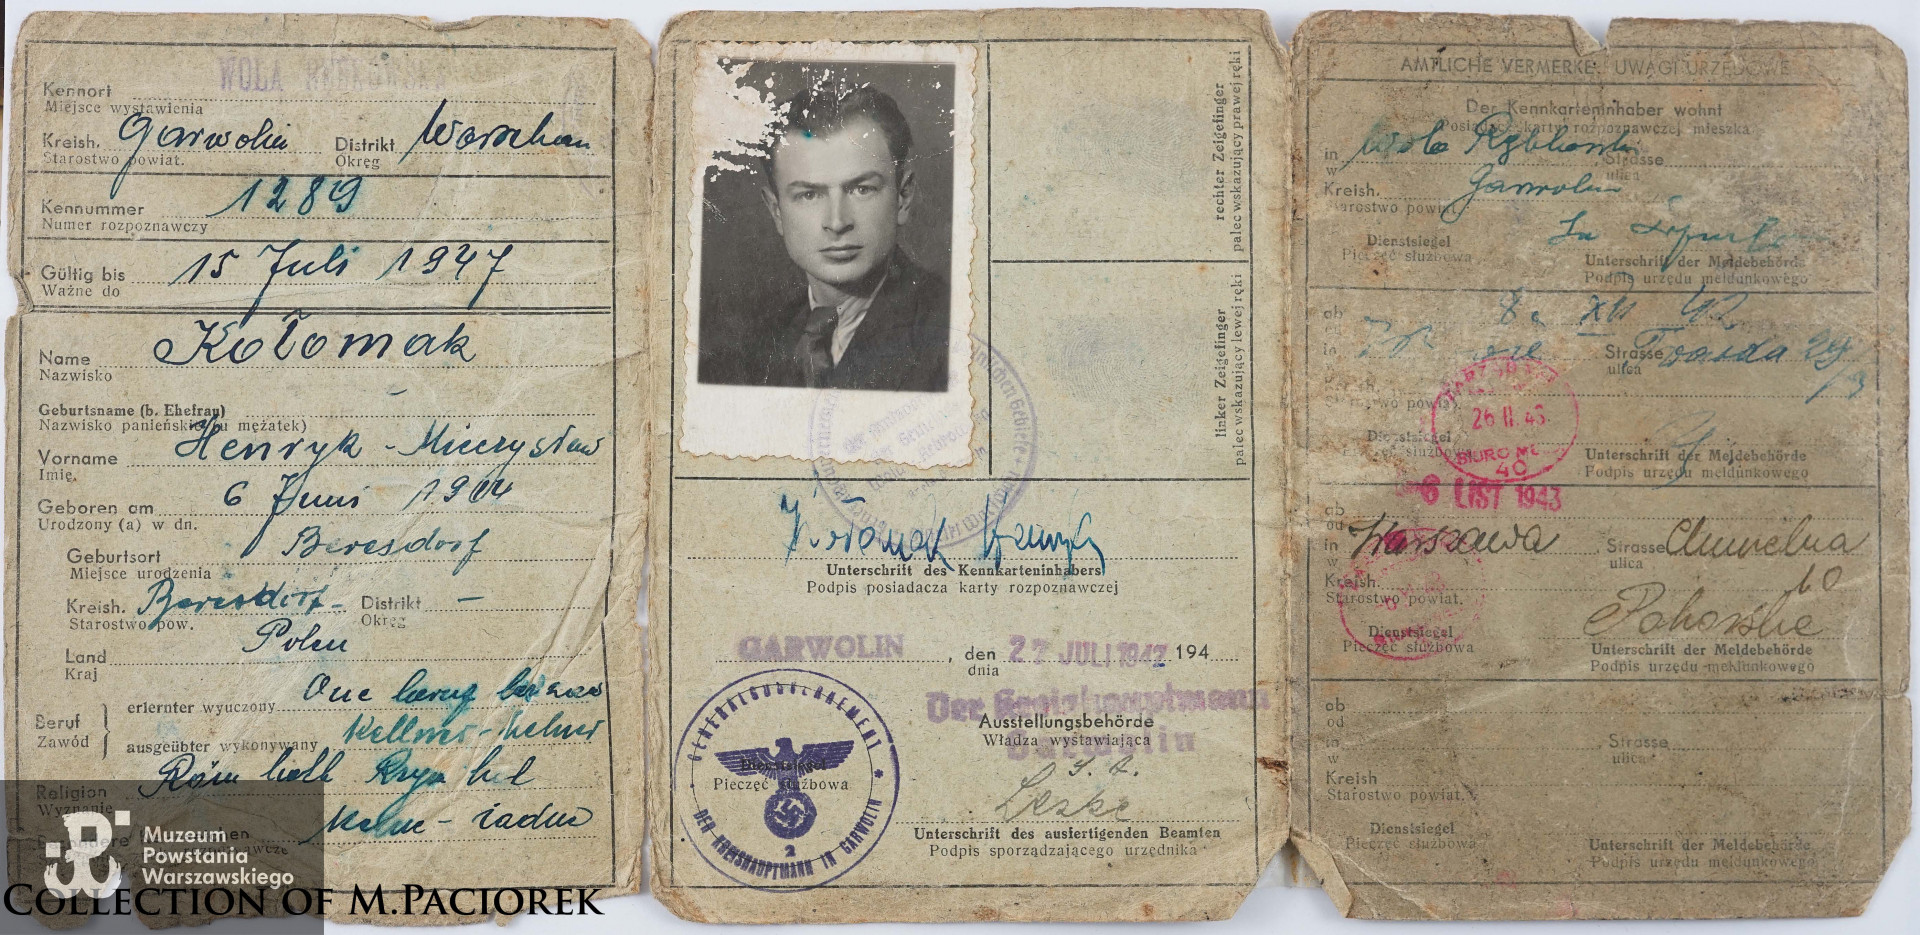 WOLA RĘBKOWSKA
Kennort
Miejsce wystawienia
Kreish. Garwolin Distrikt Warschau
Starostwo powiat. Okręg
Kennummer 1289
Numer rozpoznawczy
Gültig bis 15 Juli 1947
Ważne do
Name Kołomak
Nazwisko
Geburtsname (b. Ehefrau) –
Nazwisko panieńskie (u mężatek)
Vorname Henryk - Mieczysław
Imię.
Geboren am 6 Juni 1914
Urodzony (a) w dn.
Geburtsort Beresdorf
Miejsce urodzenia
Kreish. Beresdorf - Distrikt –
Starostwo pow. Okręg
Land Polen
Kraj
Beruf
Zawód
erlernter wyuczony
ausgeübter wykonywany Kellner - kelner
Religion Röm kath Rzym kat
Wyznanie
Keine - żadne
Muzeum
Powstania
Warszawskiego
COLLECTION OF M.PACIOREK
rechter Zeigefinger
palec wskazujący prawej ręki
linker Zeigefinger
palec wskazujący lewej ręki
Kołomak Henryk
Unterschrift des Kennkarteninhabers
Podpis posiadacza karty rozpoznawczej
GARWOLIN, den 27 JULI 1942 194
dnia
Der Kreishauptmann
Garwolin
Ausstellungsbehörde
Władza wystawiająca
GENERALGOUVERNEMENT
DER KREISHAUPTMANN IN GARWOLIN
2
Dienstsiegel
Pieczęć służbowa
Unterschrift des ausfertigenden Beamten
Podpis sporządzającego urzędnika
AMTLICHE VERMERKE UWAGI URZĘDOWE
Der Kennkarteninhaber wohnt
Posiadacz karty rozpoznawczej mieszka
in Wola Rębkowska Strasse
w ulica
Kreish. Garwolin
Starostwo powiat.
Dienstsiegel
Pieczęć służbowa
Unterschrift der Meldebehörde
Podpis urzędu meldunkowego
ab XII 42
od
in Strasse Twarda
ulica
Kreish.
Starostwo powiat.
26 II. 43.
BIURO
40
Dienstsiegel
Pieczęć służbowa
Unterschrift der Meldebehörde
Podpis urzędu meldunkowego
6 LIST 1943
ab
od
in Warszawa Strasse Chmielna
w ulica
Kreish. 10
Starostwo powiat.
Dienstsiegel
Pieczęć służbowa
Unterschrift der Meldebehörde
Podpis urzędu meldunkowego
ab
od
in Strasse
w ulica
Kreish
Starostwo powiat.
Dienstsiegel
Pieczęć służbowa
Unterschrift der Meldebehörde
Podpis urzędu meldunkowego